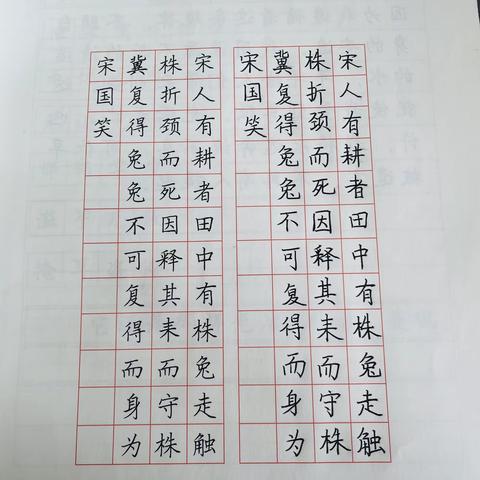 宋人有耕者田中有株兔走触
株折颈而死因释其耒而守株
冀复得兔兔不可复得而身为
宋国笑
宋人有耕者田中有株兔走触
株折颈而死因释其耒而守株
冀复得兔兔不可复得而身为
宋国笑